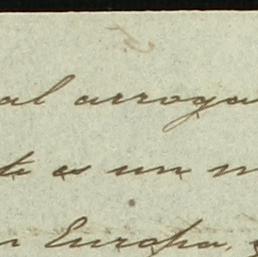 al arroga
es un m
n Europa,